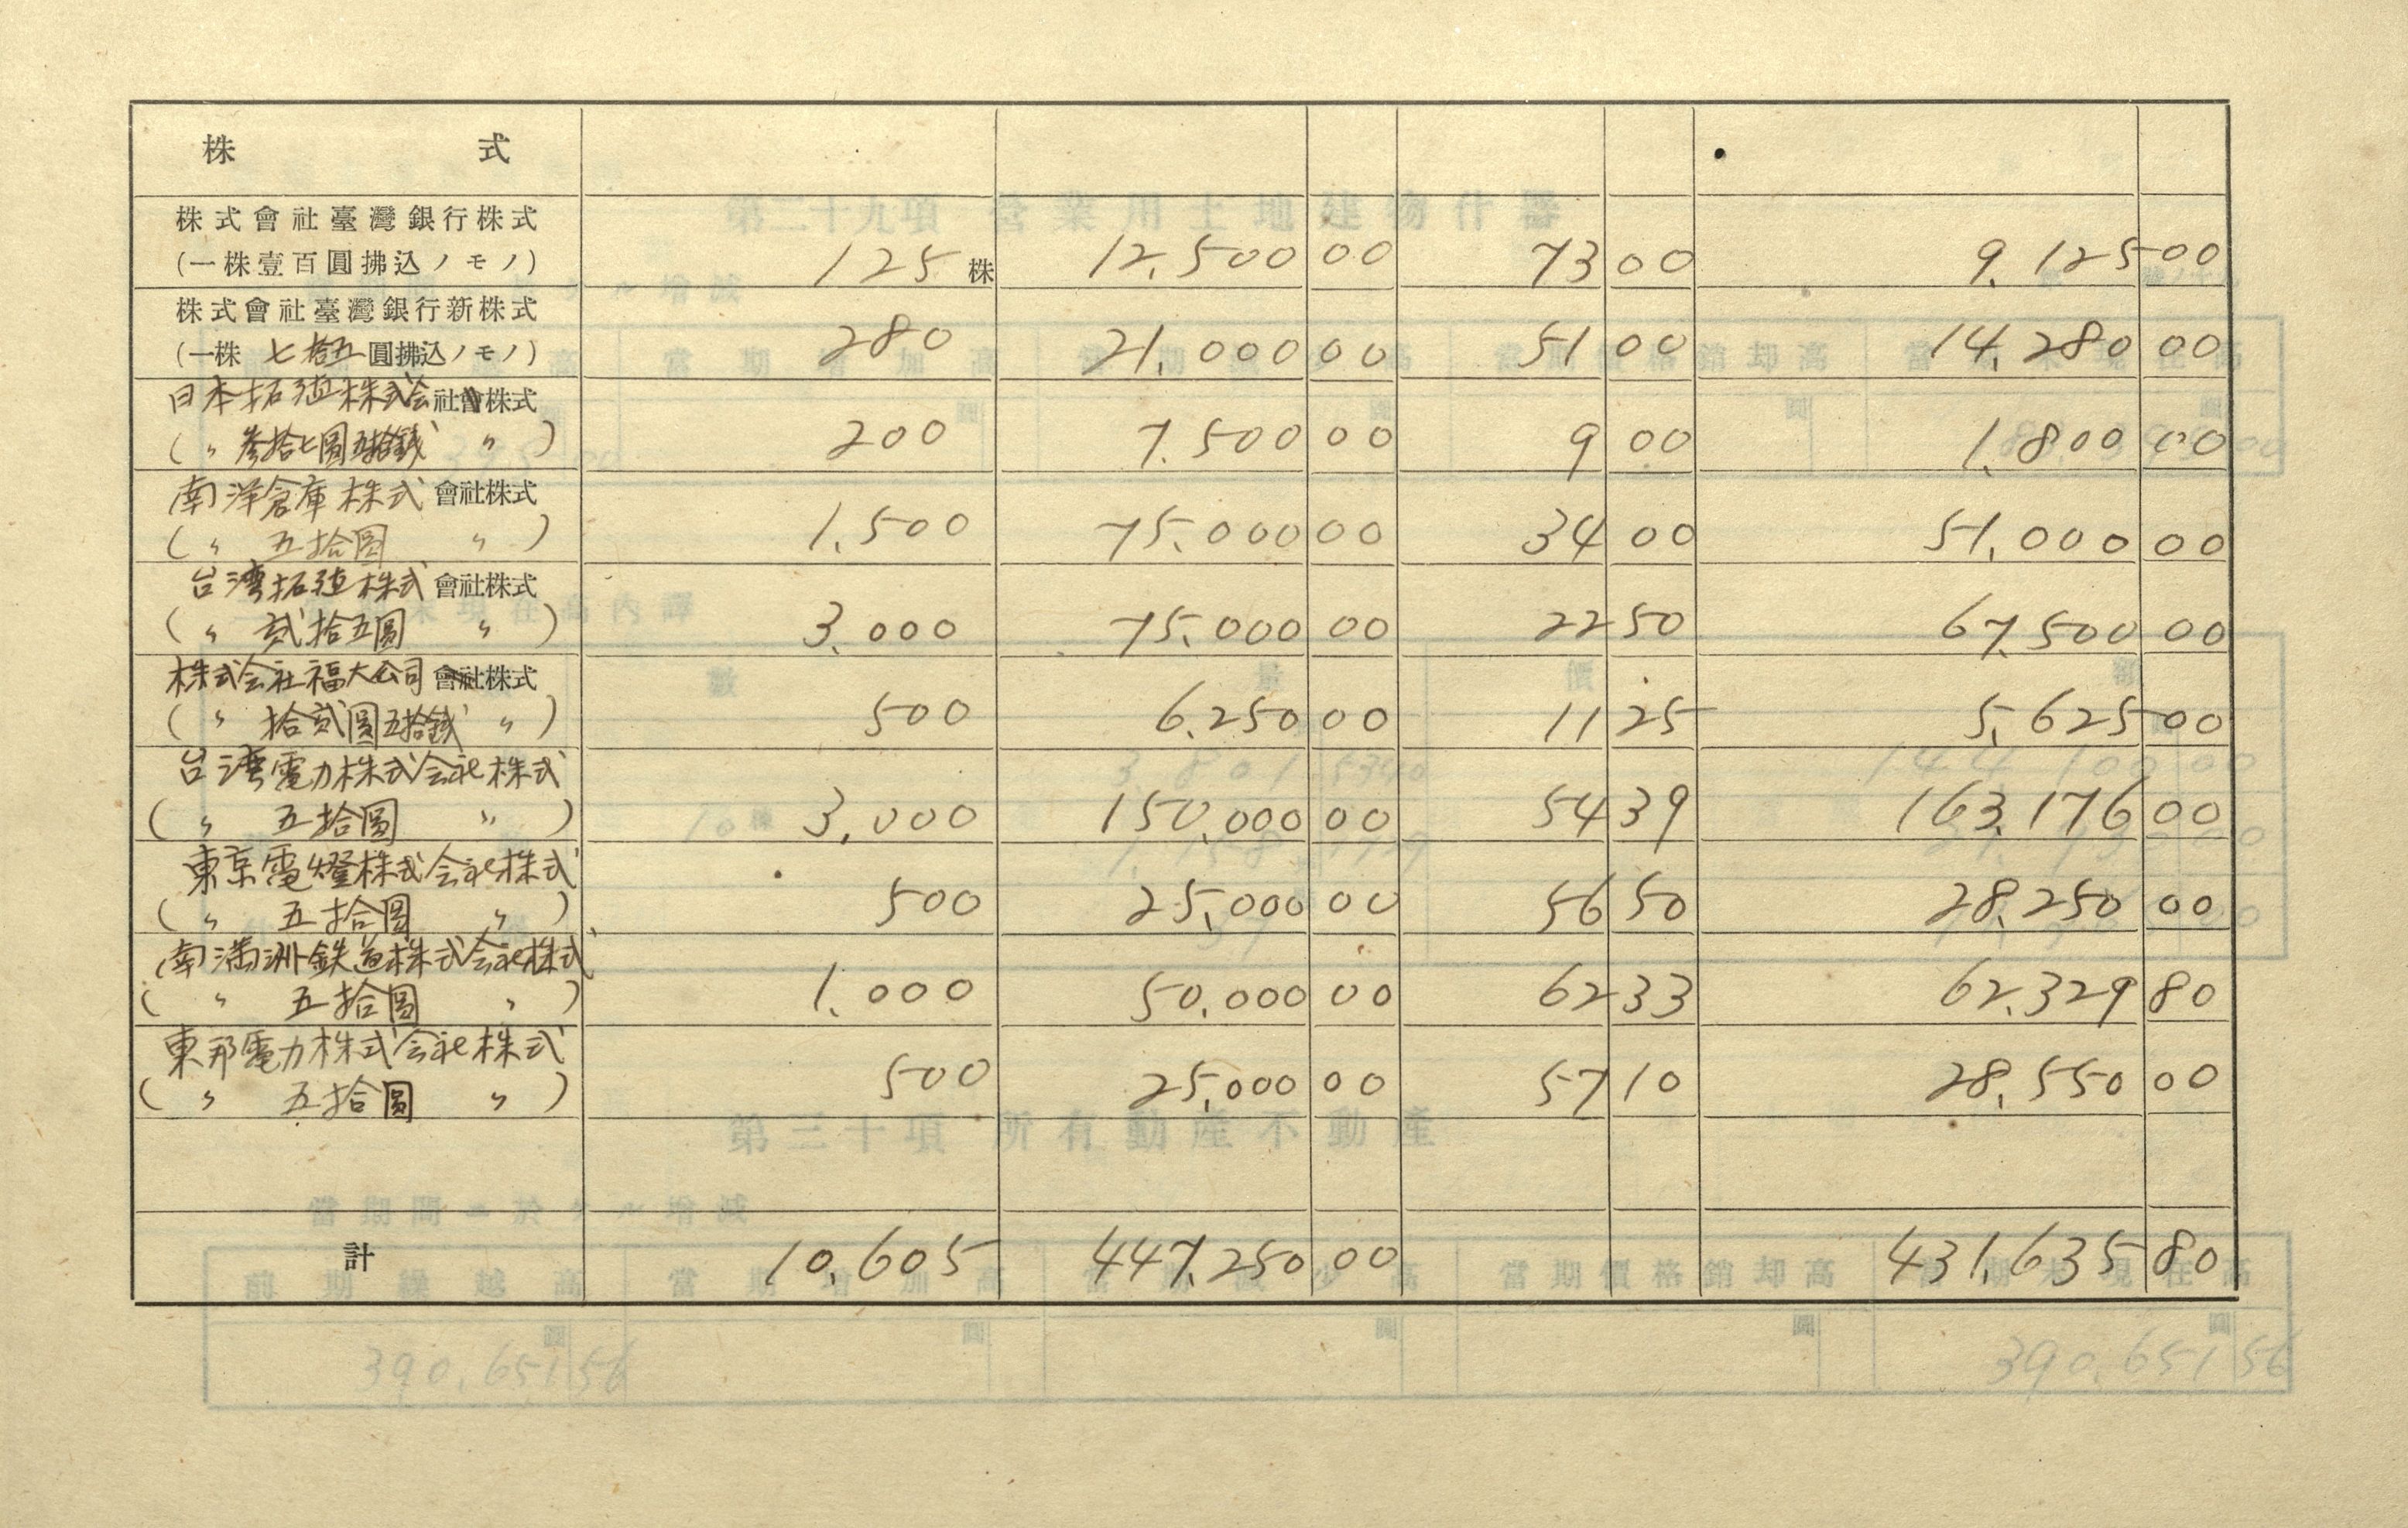 株 式
株式會社臺灣銀行株式
(一株壹百圓拂込ノモノ) 125 株 12,500 00 73 00 9,125 00
株式會社臺灣銀行新株式
(一株 七拾五 圓拂込ノモノ) 280 21,000 00 51 00 14,280 00
日本拓殖株式会社株式
(〃 参拾七圓五拾銭 〃) 200 7,500 00 9 00 1,800 00
南洋倉庫株式會社株式
(〃 五拾圓 〃) 1,500 75,000 00 34 00 51,000 00
台湾拓殖株式會社株式
(〃 貳拾五圓 〃) 3,000 75,000 00 22 50 67,500 00
株式会社福大公司會社株式
(〃 拾貳圓五拾銭 〃) 500 6,250 00 11 25 5,625 00
台湾電力株式会社株式
(〃 五拾圓 〃) 3,000 150,000 00 54 39 163,176 00
東京電燈株式会社株式
(〃 五拾圓 〃) 500 25,000 00 56 50 28,250 00
南満洲鉄道株式会社株式
(〃 五拾圓 〃) 1,000 50,000 00 62 33 62,329 80
東邦電力株式会社株式
(〃 五拾圓 〃) 500 25,000 00 57 10 28,550 00
計 10,605 447,250 00 431,635 80